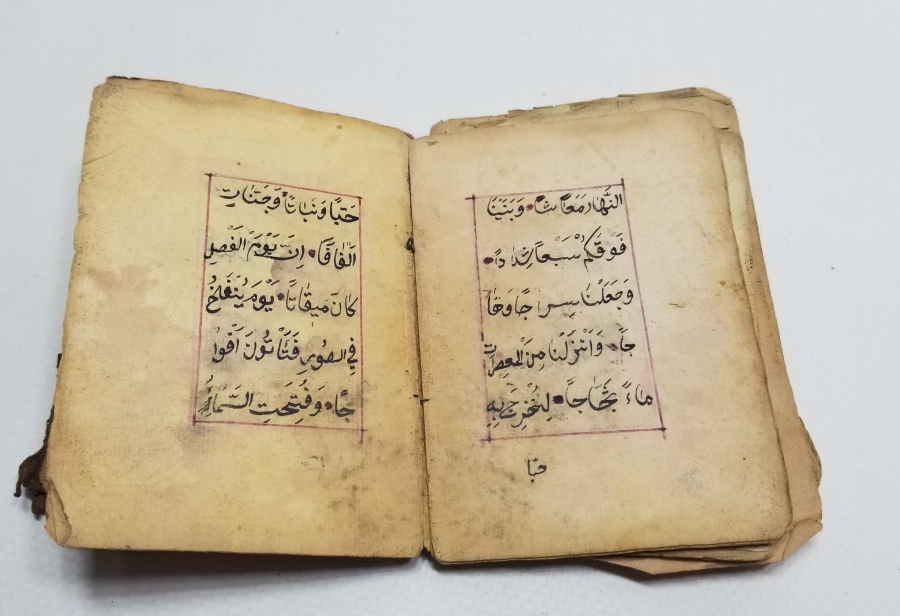 النَّهَارَ مَعَاشًا • وَبَنَيْنَا
فَوْقَكُمْ سَبْعًا شِدَادًا •
وَجَعَلْنَا سِرَاجًا وَهَّا
جًا • وَاَنْزَلْنَا مِنَ الْمُعْصِرَاتِ
مَاءً ثَجَّاجًا • لِنُخْرِجَ بِهِ
حبّا
حَبًّا وَنَبَاتًا • وَجَنَّاتٍ
اَلْفَافًا • اِنَّ يَوْمَ الْفَصْلِ
كَانَ مِيقَاتًا • يَوْمَ يُنْفَخُ
فِي الصُّورِ فَتَأْتُونَ اَفْوَا
جًا • وَفُتِحَتِ السَّمَاءُ